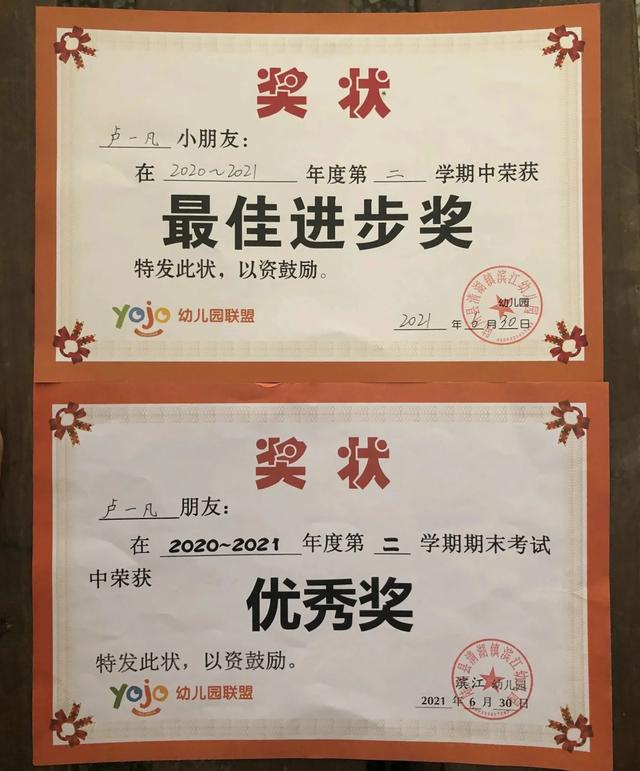 奖状
卢一凡 小朋友：
在 2020～2021 年度第 二 学期中荣获
最佳进步奖
特发此状，以资鼓励。
yojo 幼儿园联盟
幼儿园
2021 年 6 月 30 日
奖状
卢一凡 朋友：
在 2020~2021 年度第 二 学期期末考试
中荣获
优秀奖
特发此状，以资鼓励。
yojo 幼儿园联盟
滨江 幼儿园
2021 年 6 月 30 日